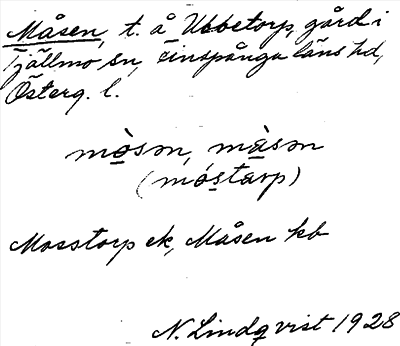 Måsen, t. å Ubbetorp, gård i
Tjällmo sn, Finspånga läns hd,
Österg. l.
mòsən, màsən
(móstarp)
Mosstorp ek, Måsen kb
N. Lindqvist 1928